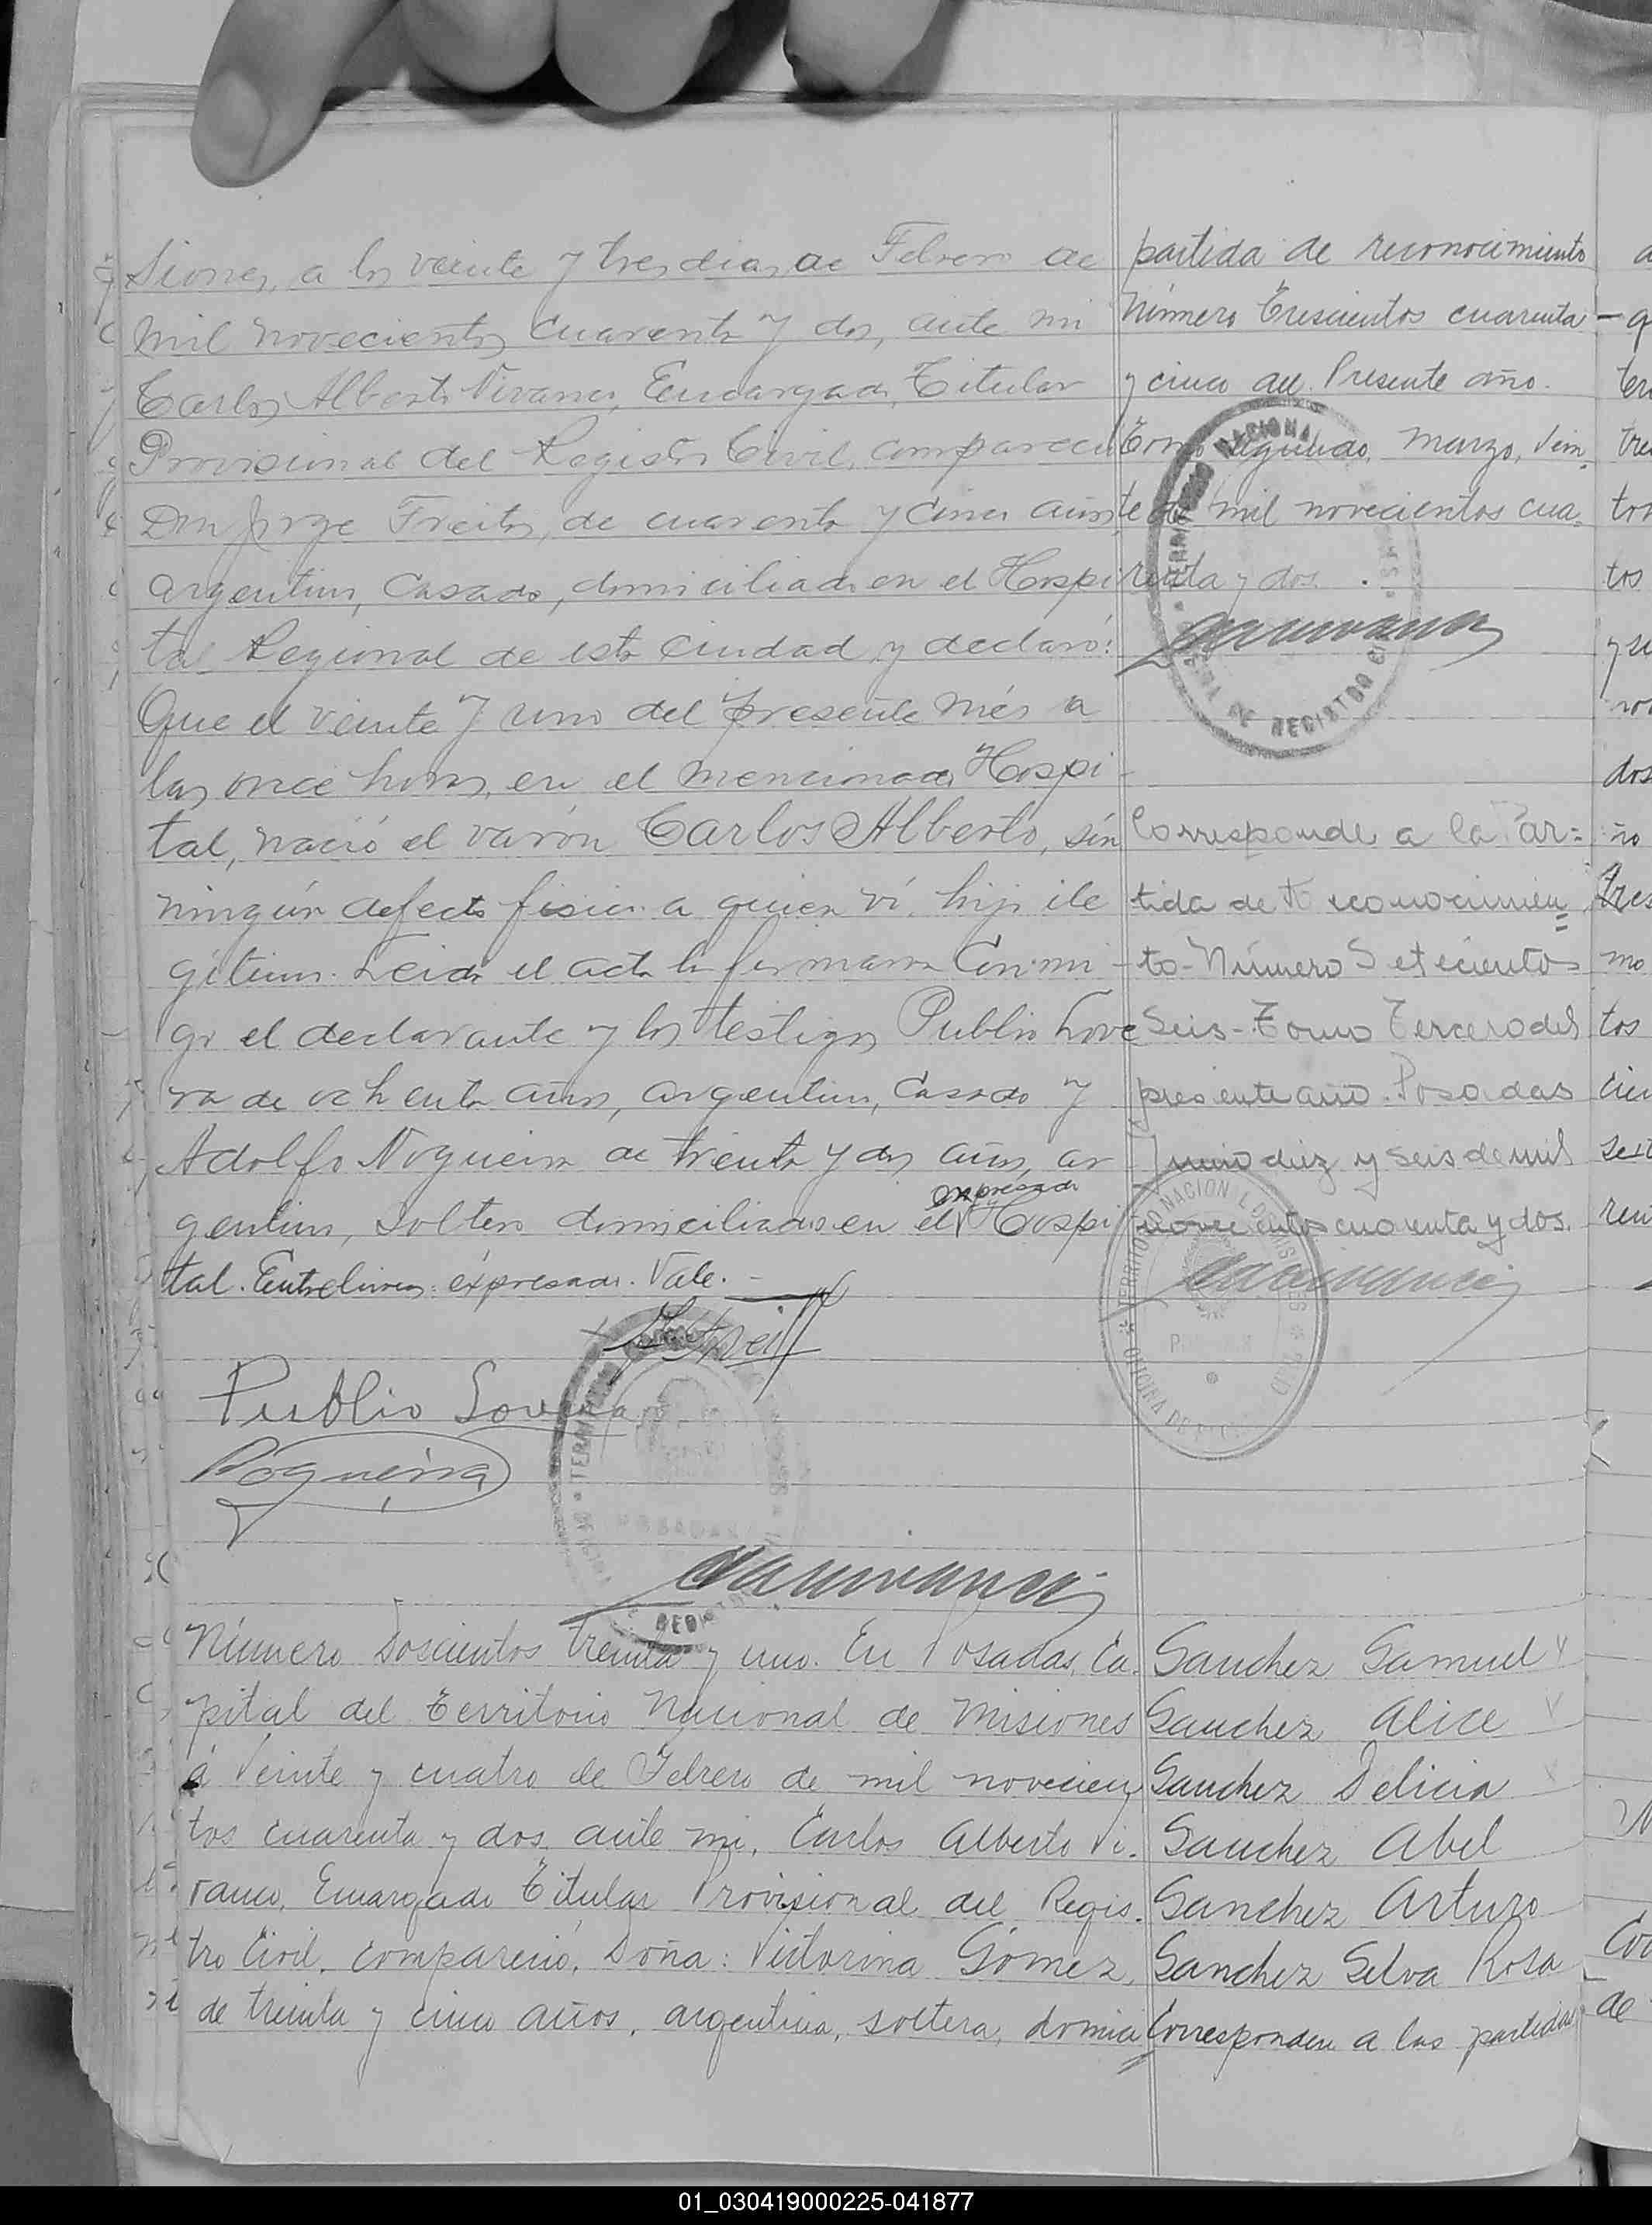 siones, a los veinte y tres dias de Febrero de
mil novecientos cuarenta y dos, ante mi
Carlos Alberto Vivanco, Encargado Titular
Provisional del Registro Civil, compareció
Don Jorge Freitas, de cuarenta y cinco años,
argentino, casado, domiciliado en el Hospi
tal Regional de esta Ciudad y declaró:
Que el veinte y uno del presente més a
las once horas, en el mencionado Hospi-
tal, nació el varón Carlos Alberto, sin
ningún defecto fisico a quien ví, hijo ile
gitimo. Leida el acta la firmaron conmi-
go el declarante y los testigos Publio Love
ra de ochenta años, argentino, casado y
Adolfo Nogueira de treinta y dos años, ar
expresado
gentino, soltero domiciliados en el Hospi
tal. Entrelineas: expresado. Vale.-
Publio Lovera
Nogueira
Número Doscientos treinta y uno. En Posadas, Ca-
pital del Territorio Nacional de Misiones
á Veinte y cuatro de Febrero de mil novecien
tos cuarenta y dos, ante mi, Carlos Alberto Vi-
vanco, Encargado Titular Provisional del Regis-
tro Civil, compareció, Doña: Victorina Gómez,
de treinta y cinco años, argentina, soltera, domici
partida de reconocimiento
Número Trescientos cuarenta
y cinco del Presente año.
Tomo segundo, Marzo, Vein-
te de mil novecientos cua-
renta y dos.
Corresponde a la Par=
tida de Reconocimien=
to- Número Setecientos
Seis- Tomo Tercero del
presente año. Posadas
Junio diez y seis de mil
novecientos cuarenta y dos.
TERRITORIO NACIONAL DE MISIONES
OFICINA DE REGISTRO CIVIL
POSADAS
Sanchez Samuel
Sanchez Alice
Sanchez Delicia
Sanchez Abel
Sanchez Arturo
Sanchez Selva Rosa
Corresponden a las partidas
01_030419000225-041877